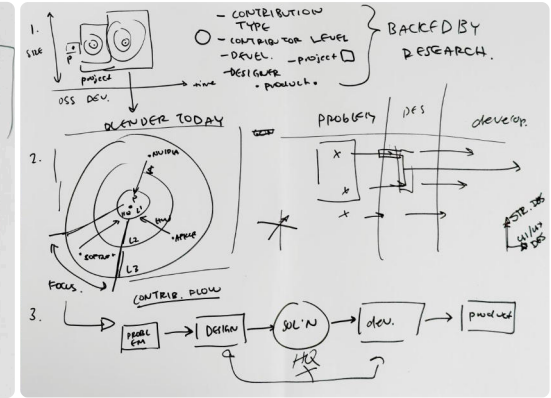 1.
SIZE
P
project
time
OSS DEV.
- CONTRIBUTION TYPE
- CONTRIBUTOR LEVEL
- DEVEL.
- project
- DESIGNER
• product •
BACKED BY RESEARCH.
BLENDER TODAY
2.
• NVIDIA
$
P
HQ L1
L2
L3
• APPLE
FOCUS.
PROBLEM
DES
develop.
x
x
x
STR. DES
UI/UX DES
CONTRIB. FLOW
3.
PROBLEM
DESIGN
SOL'N
dev.
product
HQ